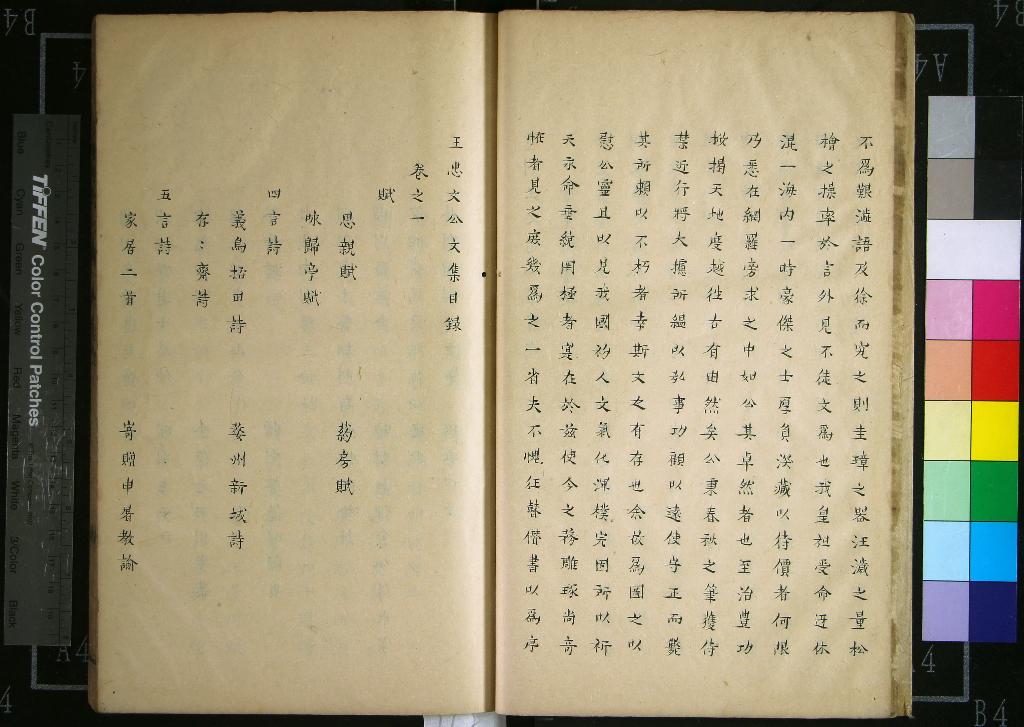 不為艱澁語及徐而究之則圭璋之器汪濊之量松
檜之操率於言外見不徒文為也我皇祖受命迓休
混一海內一時豪傑之士厚負深藏以待價者何限
乃悉在網羅旁求之中如公其卓然者也至治豊功
掀揭天地度越徃古有由然矣公秉春秋之筆獲侍
葉近行將大攄所緼以弘事功顧以遠使守正而斃
其所賴以不朽者幸斯文之有存也余故為圖之以
慰公靈且以見我國初人文氣化渾樸完固所以祈
天永命垂統罔極者寔在於茲使今之務雕琢尚奇
恠者見之庶幾為之一省夫不愧狂瞽僣書以為序
王忠文公文集目録
卷之一
賦
思親賦 药房賦
咏歸亭賦
四言詩
義烏括田詩 婺州新城詩
存存齋詩
五言詩
家居二首 寄贈申屠教諭
TIFFEN Color Control Patches
Blue Cyan Green Yellow Red Magenta White 3/Color Black
B4
A4